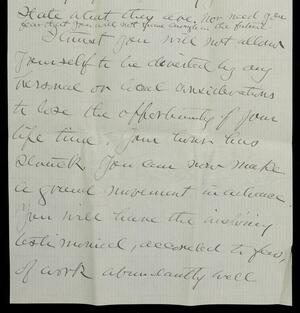 state what they are, nor need you
fear that you will not have enough in the future.
I trust you will not allow
yourself to be diverted by any
personal or local considerations
to lose the opportunity of your
life time. Your hour has
struck. You can now make
a grand movement in advance.
You will have the inspiring
testimonial, accorded to few,
of work abundantly well